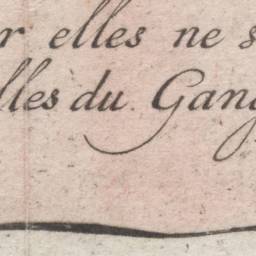 r elles ne s
lles du Gang